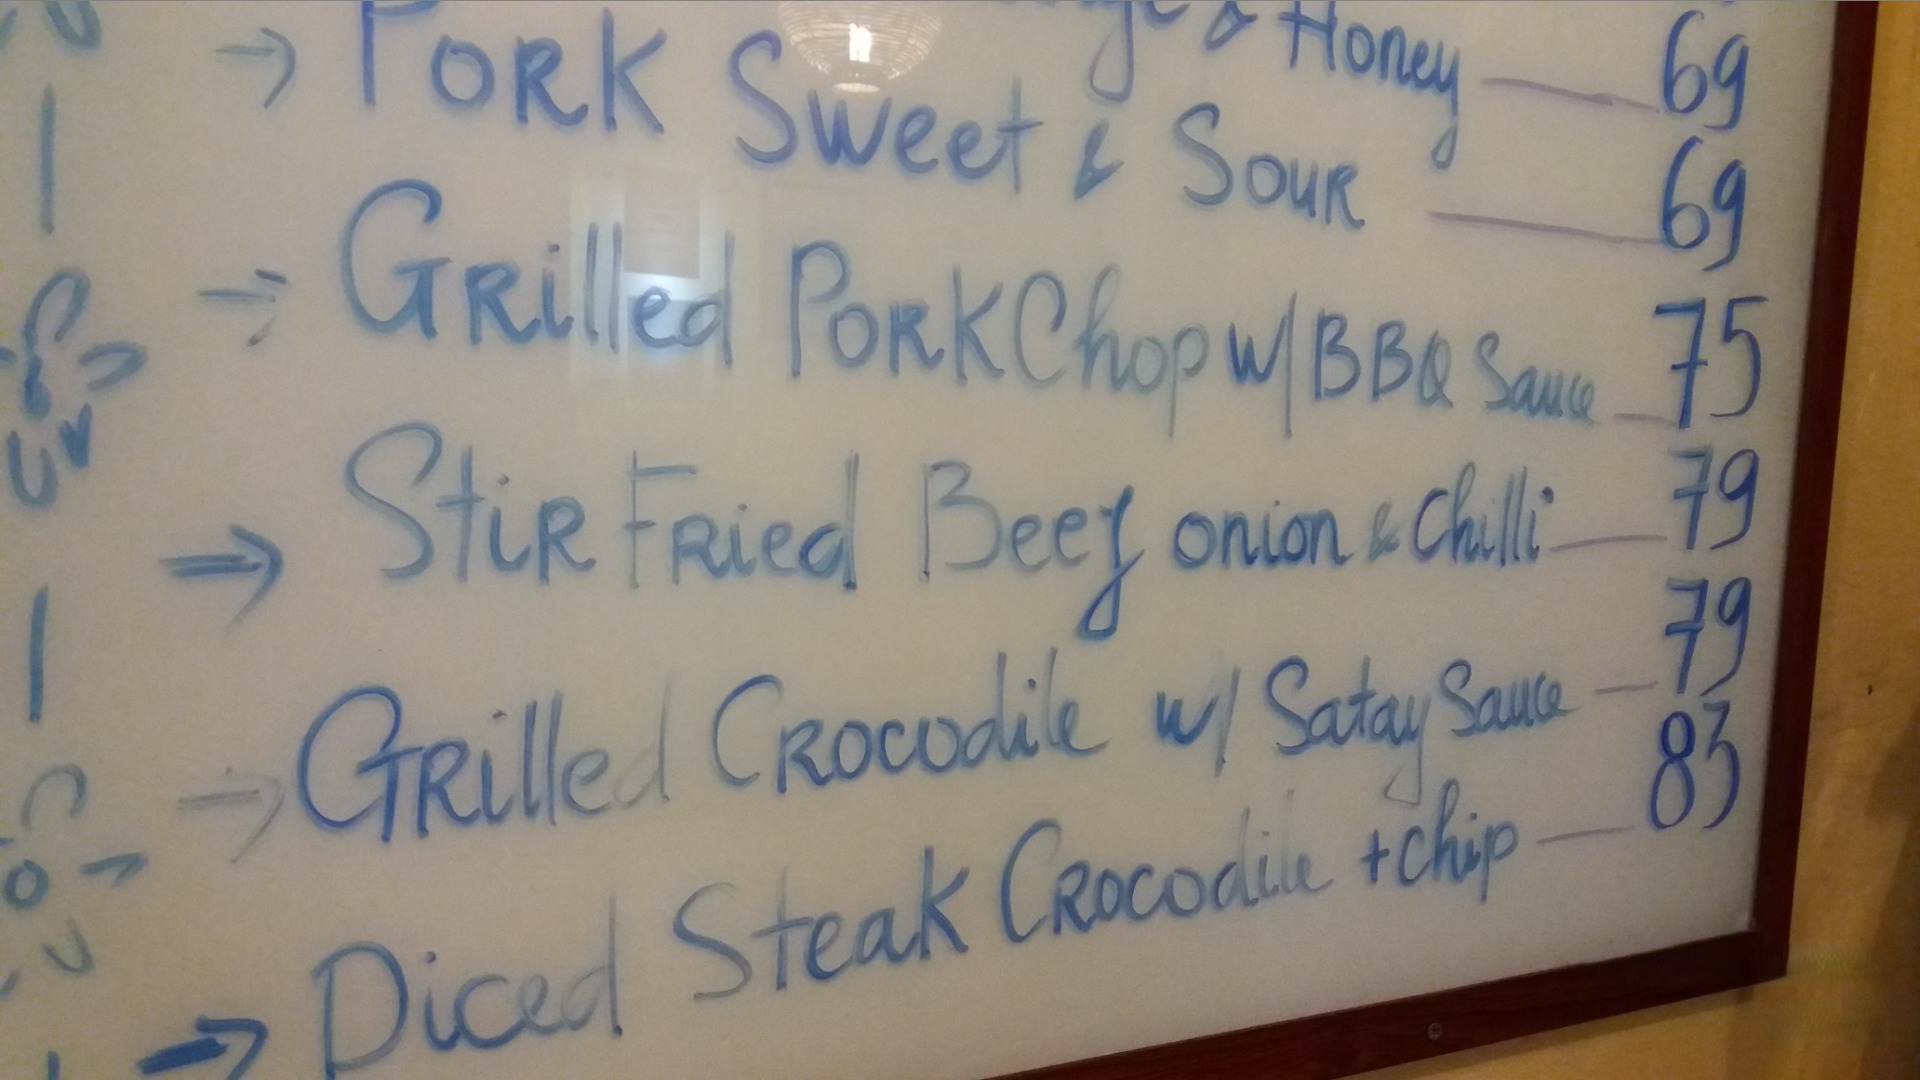 & Honey 69
Pork Sweet & Sour 69
Grilled Pork Chop w/ BBQ Sauce 75
Stir Fried Beef onion & Chilli 79
Grilled Crocodile w/ Satay Sauce 79
Diced Steak Crocodile + chip 83